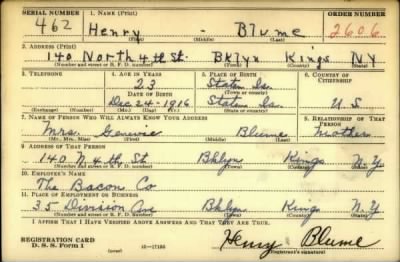 SERIAL NUMBER 1. NAME (Print) ORDER NUMBER
462 Henry - Blume 2606
(First) (Middle) (Last)
2. ADDRESS (Print)
140 North 4th St. Bklyn Kings NY
(Number and street or R. F. D. number) (Town) (County) (State)
3. TELEPHONE 4. AGE IN YEARS 5. PLACE OF BIRTH 6. COUNTRY OF CITIZENSHIP
23 Staten Is.
DATE OF BIRTH (Town or county)
Dec-24-1916 Staten Is. U S
(Exchange) (Number) (Mo.) (Day) (Yr.) (State or country)
7. NAME OF PERSON WHO WILL ALWAYS KNOW YOUR ADDRESS 8. RELATIONSHIP OF THAT PERSON
Mrs. Genevie Blume Mother
(Mr., Mrs., Miss) (First) (Middle) (Last)
9. ADDRESS OF THAT PERSON
140 N. 4th St Bklyn Kings N.Y.
(Number and street or R. F. D. number) (Town) (County) (State)
10. EMPLOYER'S NAME
The Bacon Co
11. PLACE OF EMPLOYMENT OR BUSINESS
35 Division Ave Bklyn Kings N.Y.
(Number and street or R. F. D. number) (Town) (County) (State)
I AFFIRM THAT I HAVE VERIFIED ABOVE ANSWERS AND THAT THEY ARE TRUE.
REGISTRATION CARD
D. S. S. Form 1 (over) Henry Blume
(Registrant's signature)